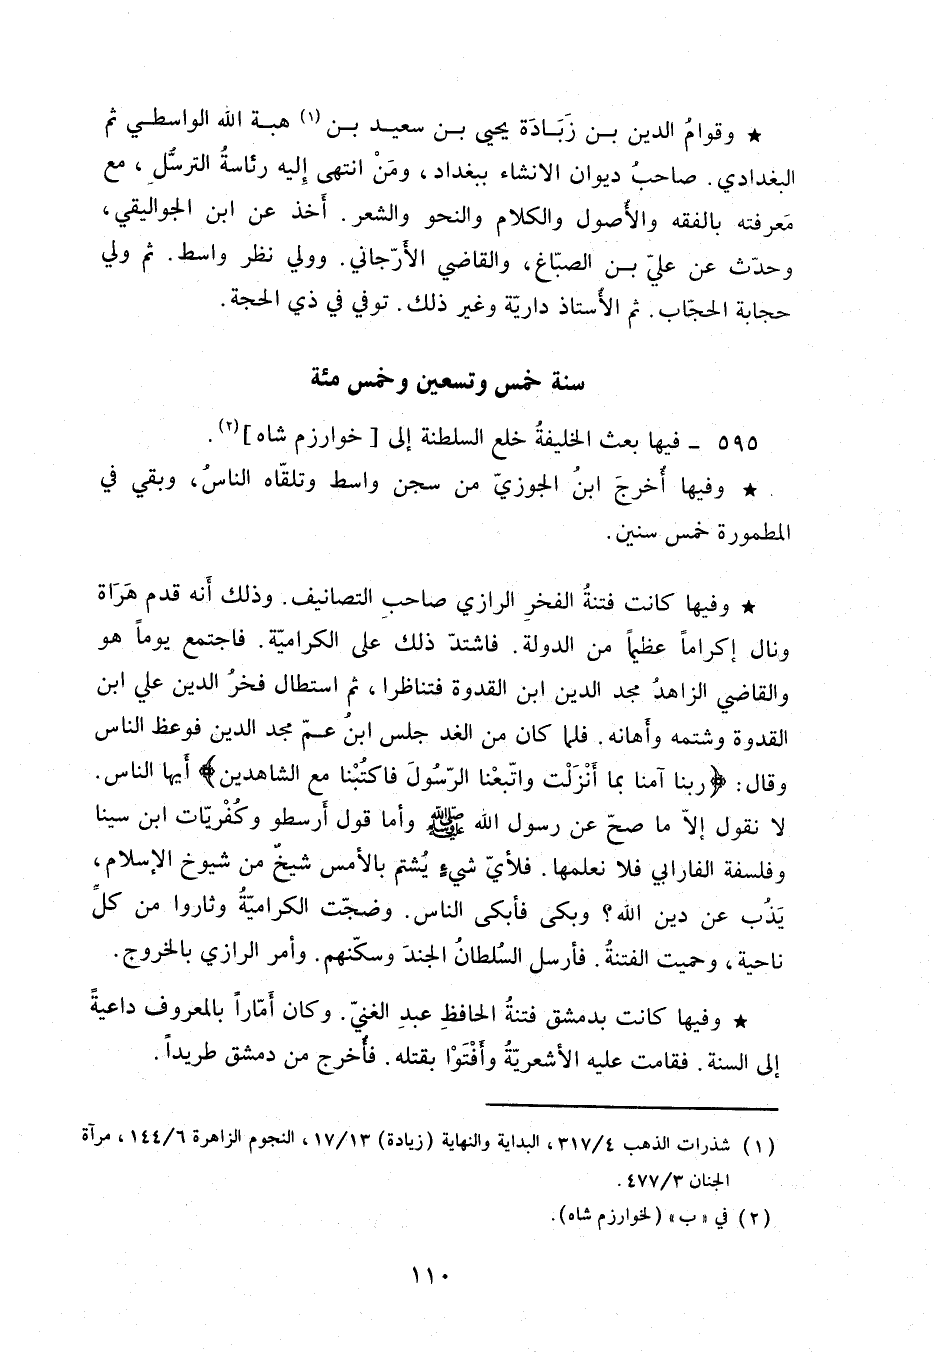 ★ وقوامُ الدين بـن زَبَـادَة يحيى بـن سعيـد بـن (١) هبـة الله الواسطـي ثم
البغدادي. صاحبُ ديوان الانشاء ببغداد، ومَنْ انتهى إليه رئاسةُ الترسُّلِ، مع
مَعرفته بالفقه والأصول والكلام والنحو والشعر. أخذ عن ابن الجواليقي،
وحدّث عن عليّ بـن الصبّاغ، والقاضي الأرّجاني. وولي نظر واسط. ثم ولي
حجابة الحجّاب. ثم الأستاذ داريّة وغير ذلك. توفي في ذي الحجة.
سنة خمس وتسعين وخمس مئة
٥٩٥ ـ فيها بعث الخليفةُ خلع السلطنة إلى [خوارزم شاه](٢).
★ وفيها أُخرجَ ابنُ الجوزيّ من سجن واسط وتلقّاه الناسُ، وبقي في
المطمورة خمس سنين.
★ وفيها كانت فتنةُ الفخرِ الرازي صاحبِ التصانيف. وذلك أنه قدم هَرَاة
ونال إكراماً عظيماً من الدولة. فاشتدّ ذلك على الكراميّة. فاجتمع يوماً هو
والقاضي الزاهدُ مجد الدين ابن القدوة فتناظرا، ثم استطال فخرُ الدين علي ابن
القدوة وشتمه وأهانه. فلما كان من الغد جلس ابنُ عـمّ مجد الدين فوعظ الناس
وقال: ﴿ربنا آمنا بما أَنْزَلْت واتّبعْنا الرّسُولَ فاكتُبْنا مع الشاهدين﴾ أيها الناس.
لا نقول إلاّ ما صحّ عن رسول الله ﷺ وأما قول أرسطو وكُفْريّات ابن سينا
وفلسفة الفارابي فلا نعلمها. فلأيّ شيءٍ يُشتم بالأمس شيخٌ من شيوخ الإسلام،
يَذُب عن دين الله؟ وبكى فأبكى الناس. وضجّت الكراميّةُ وثاروا من كلِّ
ناحية، وحميت الفتنةُ. فأرسل السُلطانُ الجندَ وسكّنهم. وأمر الرازي بالخروج.
★ وفيها كانت بدمشق فتنةُ الحافظِ عبدِ الغنيّ. وكان أمّاراً بالمعروف داعيةً
إلى السنة. فقامت عليه الأشعريّةُ وأَفْتَوْا بقتله. فأُخرج من دمشق طريداً.
(١) شذرات الذهب ٣١٧/٤، البداية والنهاية (زيادة) ١٧/١٣، النجوم الزاهرة ١٤٤/٦، مرآة
الجنان ٤٧٧/٣.
(٢) في «ب» (لخوارزم شاه).
١١٠